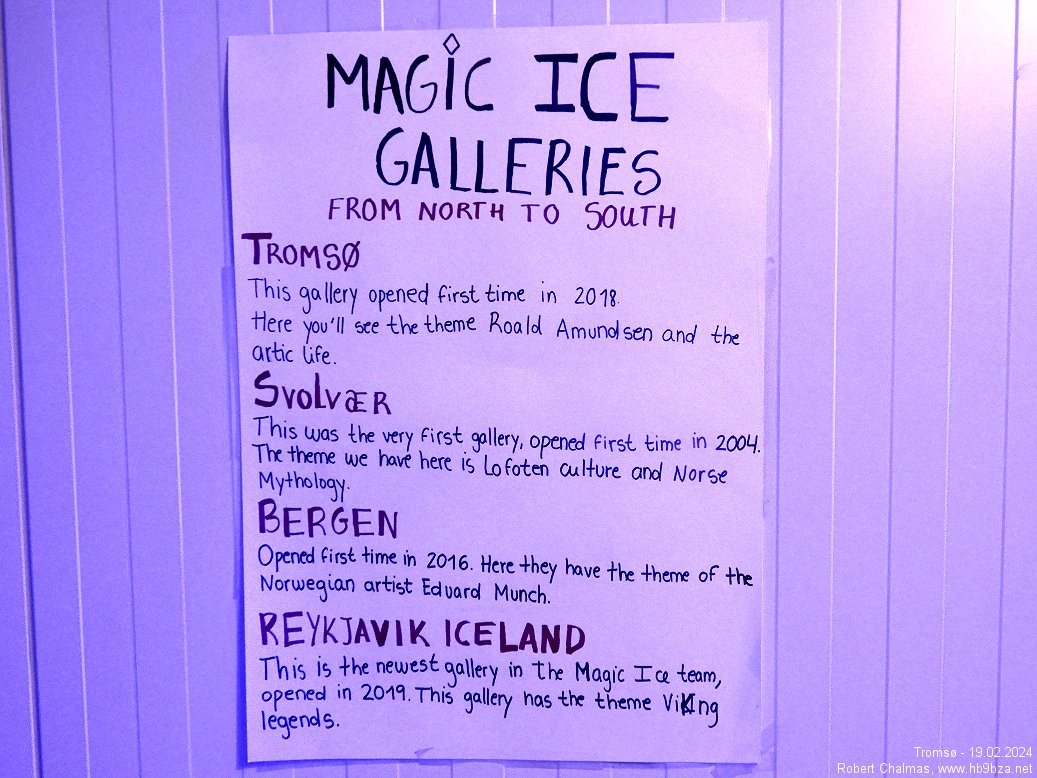 MAGIC ICE
GALLERIES
FROM NORTH TO SOUTH
TROMSØ
This gallery opened first time in 2018.
Here you'll see the theme Roald Amundsen and the
artic life.
SVOLVÆR
This was the very first gallery, opened first time in 2004.
The theme we have here is Lofoten culture and Norse
Mythology.
BERGEN
Opened first time in 2016. Here they have the theme of the
Norwegian artist Edvard Munch.
REYKJAVIK ICELAND
This is the newest gallery in the Magic Ice team,
opened in 2019. This gallery has the theme Viking
legends.
Tromsø - 19.02.2024
Robert Chalmas, www.hb9bza.net